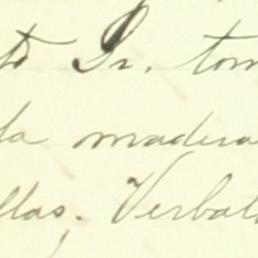 to Sr. tom
la madera
llas; Verbal